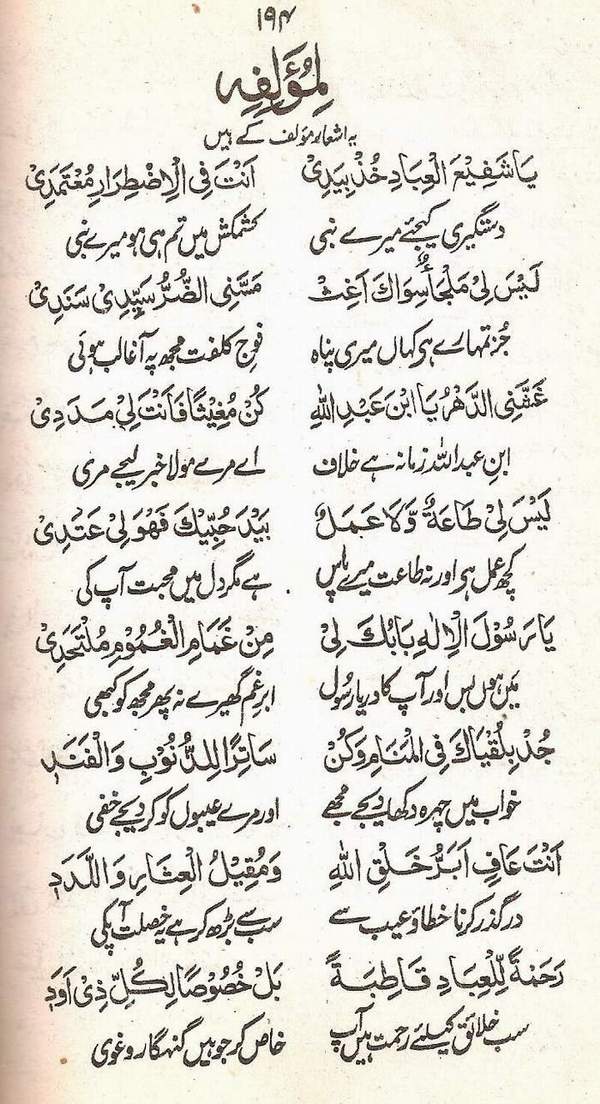 ۱۹۴
لِمُؤَلِّفِهٖ
یہ اشعار مؤلف کے ہیں
يَا شَفِيْعَ الْعِبَادِ خُذْ بِيَدِيْ اَنْتَ فِي الْاِضْطِرَارِ مُعْتَمَدِيْ
دستگیری کیجئے میرے نبی کشمکش میں تم ہی ہو میرے نبی
لَيْسَ لِيْ مَلْجَأٌ سِوَاكَ اَغِثْ مَسَّنِي الضُّرُّ سَيِّدِيْ سَنَدِيْ
جز تمہارے ہی کہاں میری پناہ فوج کلفت مجھ پہ آ غالب ہوئی
غَشَّنِي الدَّهْرُ يَا ابْنَ عَبْدِ اللهِ كُنْ مُغِيْثًا فَاَنْتَ لِيْ مَدَدِيْ
ابنِ عبداللہ زمانہ ہے خلاف اے مرے مولا خبر لیجے مری
لَيْسَ لِيْ طَاعَةٌ وَّلَا عَمَلٌ بَيْدَ حُبِّيْكَ فَهُوَ لِيْ عَتَدِيْ
کچھ عمل ہی اور نہ طاعت میرے پاس ہے مگر دل میں محبت آپ کی
يَا رَسُوْلَ الْاِلٰهِ بَابُكَ لِيْ مِنْ غَمَامِ الْغُمُوْمِ مُلْتَحَدِيْ
میں ہوں بس اور آپ کا در یا رسول ابر غم گھیرے نہ پھر مجھ کو کبھی
جُدْ بِلُقْيَاكَ فِي الْمَنَامِ وَكُنْ سَاتِرًا لِلذُّنُوْبِ وَالْفَنَدِ
خواب میں چہرہ دکھا دیجے مجھے اور مرے عیبوں کو کر دیجے خفی
اَنْتَ عَافٍ اَبَرُّ خَلْقِ اللهِ وَمُقِيْلُ الْعِثَارِ وَاللَّدَدِ
درگذر کرنا خطا و عیب سے سب سے بڑھ کر ہے یہ خصلت آپکی
رَحْمَةً لِّلْعِبَادِ قَاطِبَةً بَلْ خُصُوْصًا لِكُلِّ ذِيْ اَوَدِ
سب خلائق کیلئے رحمت ہیں آپ خاص کر جو ہیں گنہگار و غوی